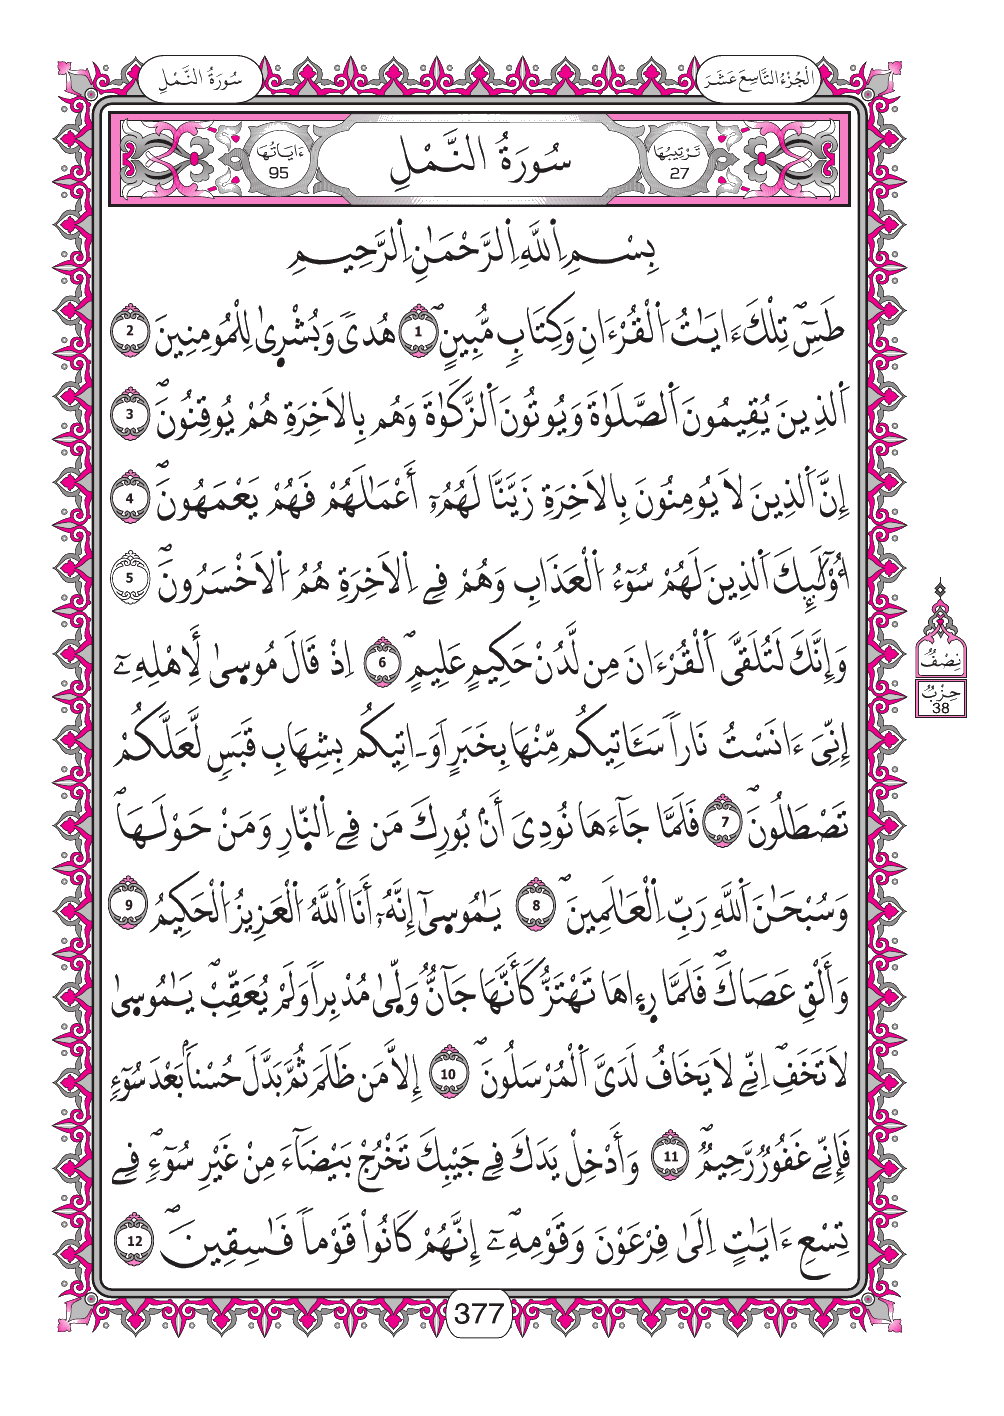 سُورَةُ النَّمْلِ
الْجُزْءُ التَّاسِعَ عَشَرَ
تَرْتِيبُهَا 27
سُورَةُ النَّمْلِ
ءَايَاتُهَا 95
بِسْمِ اِ۬للَّهِ اِ۬لرَّحْمَٰنِ اِ۬لرَّحِيمِ
طَسِٓۖ تِلْكَ ءَايَٰتُ اُ۬لْقُرْءَانِ وَكِتَابٖ مُّبِينٍۖ 1 هُدىٗ وَبُشْر۪يٰ لِلْمُومِنِينَ 2
اَ۬لذِينَ يُقِيمُونَ اَ۬لصَّلَوٰةَ وَيُوتُونَ اَ۬لزَّكَوٰةَ وَهُم بِالَاخِرَةِ هُمْ يُوقِنُونَۖ 3
إِنَّ اَ۬لذِينَ لَا يُومِنُونَ بِالَاخِرَةِ زَيَّنَّا لَهُمُۥٓ أَعْمَٰلَهُمْ فَهُمْ يَعْمَهُونَۖ 4
أُوْلَٰٓئِكَ اَ۬لذِينَ لَهُمْ سُوٓءُ اُ۬لْعَذَابِ وَهُمْ فِے اِ۬لَاخِرَةِ هُمُ اُ۬لَاخْسَرُونَۖ 5
وَإِنَّكَ لَتُلَقَّى اَ۬لْقُرْءَانَ مِن لَّدُنْ حَكِيمٍ عَلِيمٍۖ 6 اِذْ قَالَ مُوس۪يٰ لِأَهْلِهِۦٓ
إِنِّيَ ءَانَسْتُ نَاراٗ سَـَٔاتِيكُم مِّنْهَا بِخَبَرٍ اَوَ ـ اتِيكُم بِشِهَابِ قَبَسٖ لَّعَلَّكُمْ
تَصْطَلُونَۖ 7 فَلَمَّا جَآءَهَا نُودِيَ أَنۢ بُورِكَ مَن فِے اِ۬لنّ۪ارِ وَمَنْ حَوْلَهَاۖ
وَسُبْحَٰنَ اَ۬للَّهِ رَبِّ اِ۬لْعَٰلَمِينَۖ 8 يَٰمُوس۪يٰٓ إِنَّهُۥٓ أَنَا اَ۬للَّهُ اُ۬لْعَزِيزُ اُ۬لْحَكِيمُ 9
وَأَلْقِ عَصَاكَۖ فَلَمَّا ر۪ء۪اهَا تَهْتَزُّ كَأَنَّهَا جَآنّٞ وَلّ۪يٰ مُدْبِراٗ وَلَمْ يُعَقِّبْۖ يَٰمُوس۪يٰ
لَا تَخَفِۖ اِنِّے لَا يَخَافُ لَدَيَّ اَ۬لْمُرْسَلُونَۖ 10 إِلَّا مَن ظَلَمَ ثُمَّ بَدَّلَ حُسْناَۢ بَعْدَ سُوٓءٖ
فَإِنِّے غَفُورٞ رَّحِيمٞۖ 11 وَأَدْخِلْ يَدَكَ فِے جَيْبِكَ تَخْرُجْ بَيْضَآءَ مِنْ غَيْرِ سُوٓءٖۖ فِے
تِسْعِ ءَايَٰتٍ اِلَىٰ فِرْعَوْنَ وَقَوْمِهِۦٓۖ إِنَّهُمْ كَانُواْ قَوْماٗ فَٰسِقِينَۖ 12
نِصْفُ
حِزْبُ
38
377